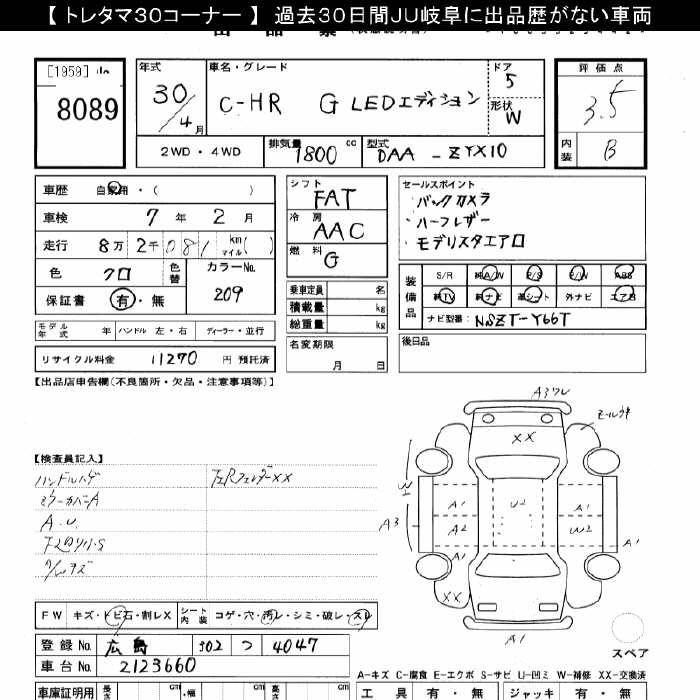 【トレタマ30コーナー】 過去30日間JU岐阜に出品歴がない車両
[1959]
8089
年式
30/4月
車名・グレード
C-HR G LEDエディション
ドア
5
形状
W
評価点
3.5
内装
B
2WD・4WD
排気量 1800 cc
型式 DAA-ZYX10
車歴 自家用・( )
車検 7年 2月
走行 8万 2千 081 km マイル( )
色 クロ 色替
カラーNo. 209
保証書 有・無
モデル年式 年 ハンドル 左・右 ディーラー・並行
リサイクル料金 11270 円 預託済
シフト FAT
冷房 AAC
燃料 G
乗車定員 名
積載量 kg
総重量 kg
名変期限
月 日
セールスポイント
・バックカメラ
・ハーフレザー
・モデリスタエアロ
装備品
S/R 純A/W P/S P/W ABS
純TV 純ナビ 革シート 外ナビ エアB
ナビ型番: NSZT-Y66T
後日品
【出品店申告欄(不良箇所・欠品・注意事項等)】
【検査員記入】
A.U.
FW キズ・トビ石・割レX シート内装 コゲ・穴・汚レ・シミ・破レ・スレ
登録No. 広島 302 つ 4047
車台No. 2123660
XX
A1
A1
U2
A3
A2
W2
A1
A1
XX
A1
スペア
A-キズ C-腐食 E-エクボ S-サビ U-凹ミ W-補修 XX-交換済
車庫証明用 長さ cm ・幅 cm cm
工具 有・無 ジャッキ 有・無